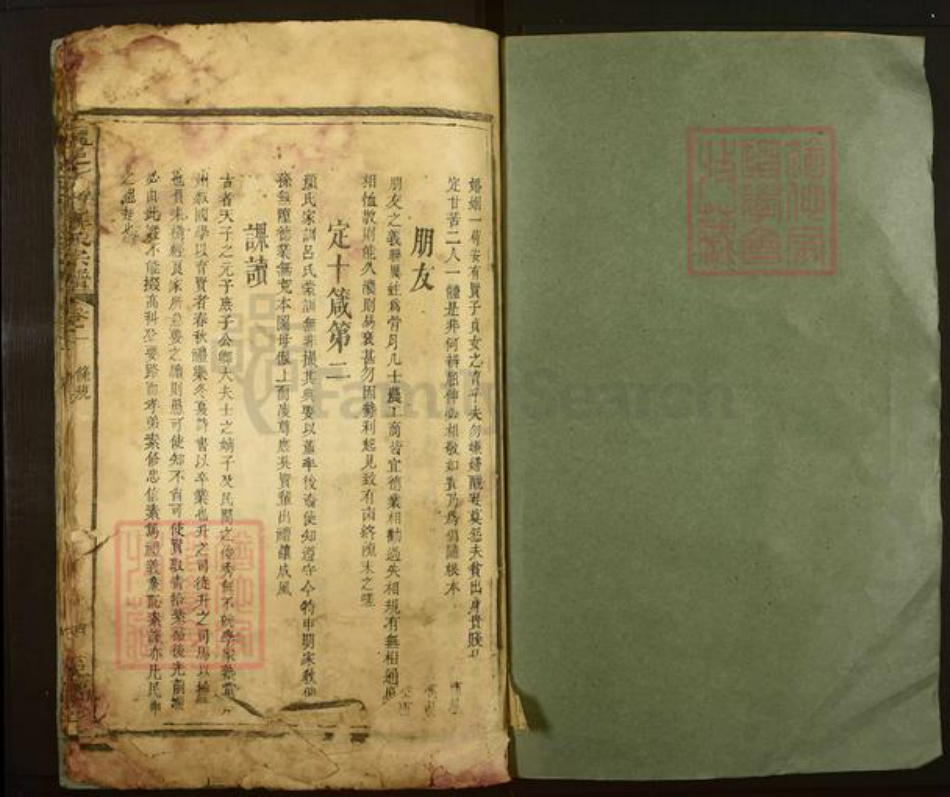 婚姻一苟安有賢子貞女之育乎夫勿嫌婦醜妻莫恶夫貧出身貴賤
定甘苦二人一體是非何辨屈伸必相敬如賓乃為倡隨根本
朋友
朋友之義聯異姓為骨月凡士農工商皆宜德業相勸過失相規有無相通
相恤敬則能久瀆則易衰甚勿因勢利起見致有凶終隙末之嗟
定十箴第二
顔氏家訓呂氏蒙訓無非撮其典要以董率後裔使知遵守今特申明家教
孫無墮德業無荒本國毋傲上而凌尊庶英賢輩出禮讓成風
課讀
古者天子之元子庶子公卿大夫士之嫡子及民間之俊秀無不向學家塾黨
州叙國學以育賢者春秋禮樂冬夏詩書以卒業也升之司徒升之司馬以
惟負耒橫經良家所急要之讀則愚可使知不肖可使賢取青拾紫若後光前
必由此途不能掇高科登要路而孝弟素脩忠信素篤禮義廉恥素講亦凡民
宗譜
條規
FamilySearch